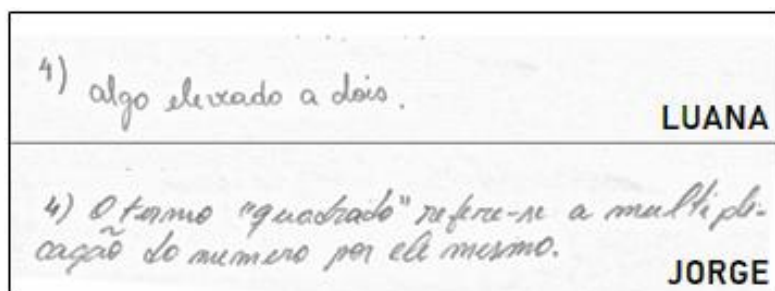 4) algo elevado a dois.
LUANA
4) O termo "quadrado" refere-se a multipli-
cação do numero por ele mesmo.
JORGE